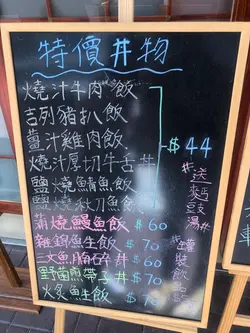 特價丼物
燒汁牛肉飯
吉列豬扒飯
薑汁雞肉飯
燒汁厚切牛舌丼
鹽燒鯖魚飯
鹽燒秋刀魚飯
$44
送麵豉湯
蒲燒鰻魚飯 $60
雜錦魚生飯 $70
三文魚腩石丼 $60
野菌煎帶子丼 $70
火炙魚生飯 $70
罐裝飲品